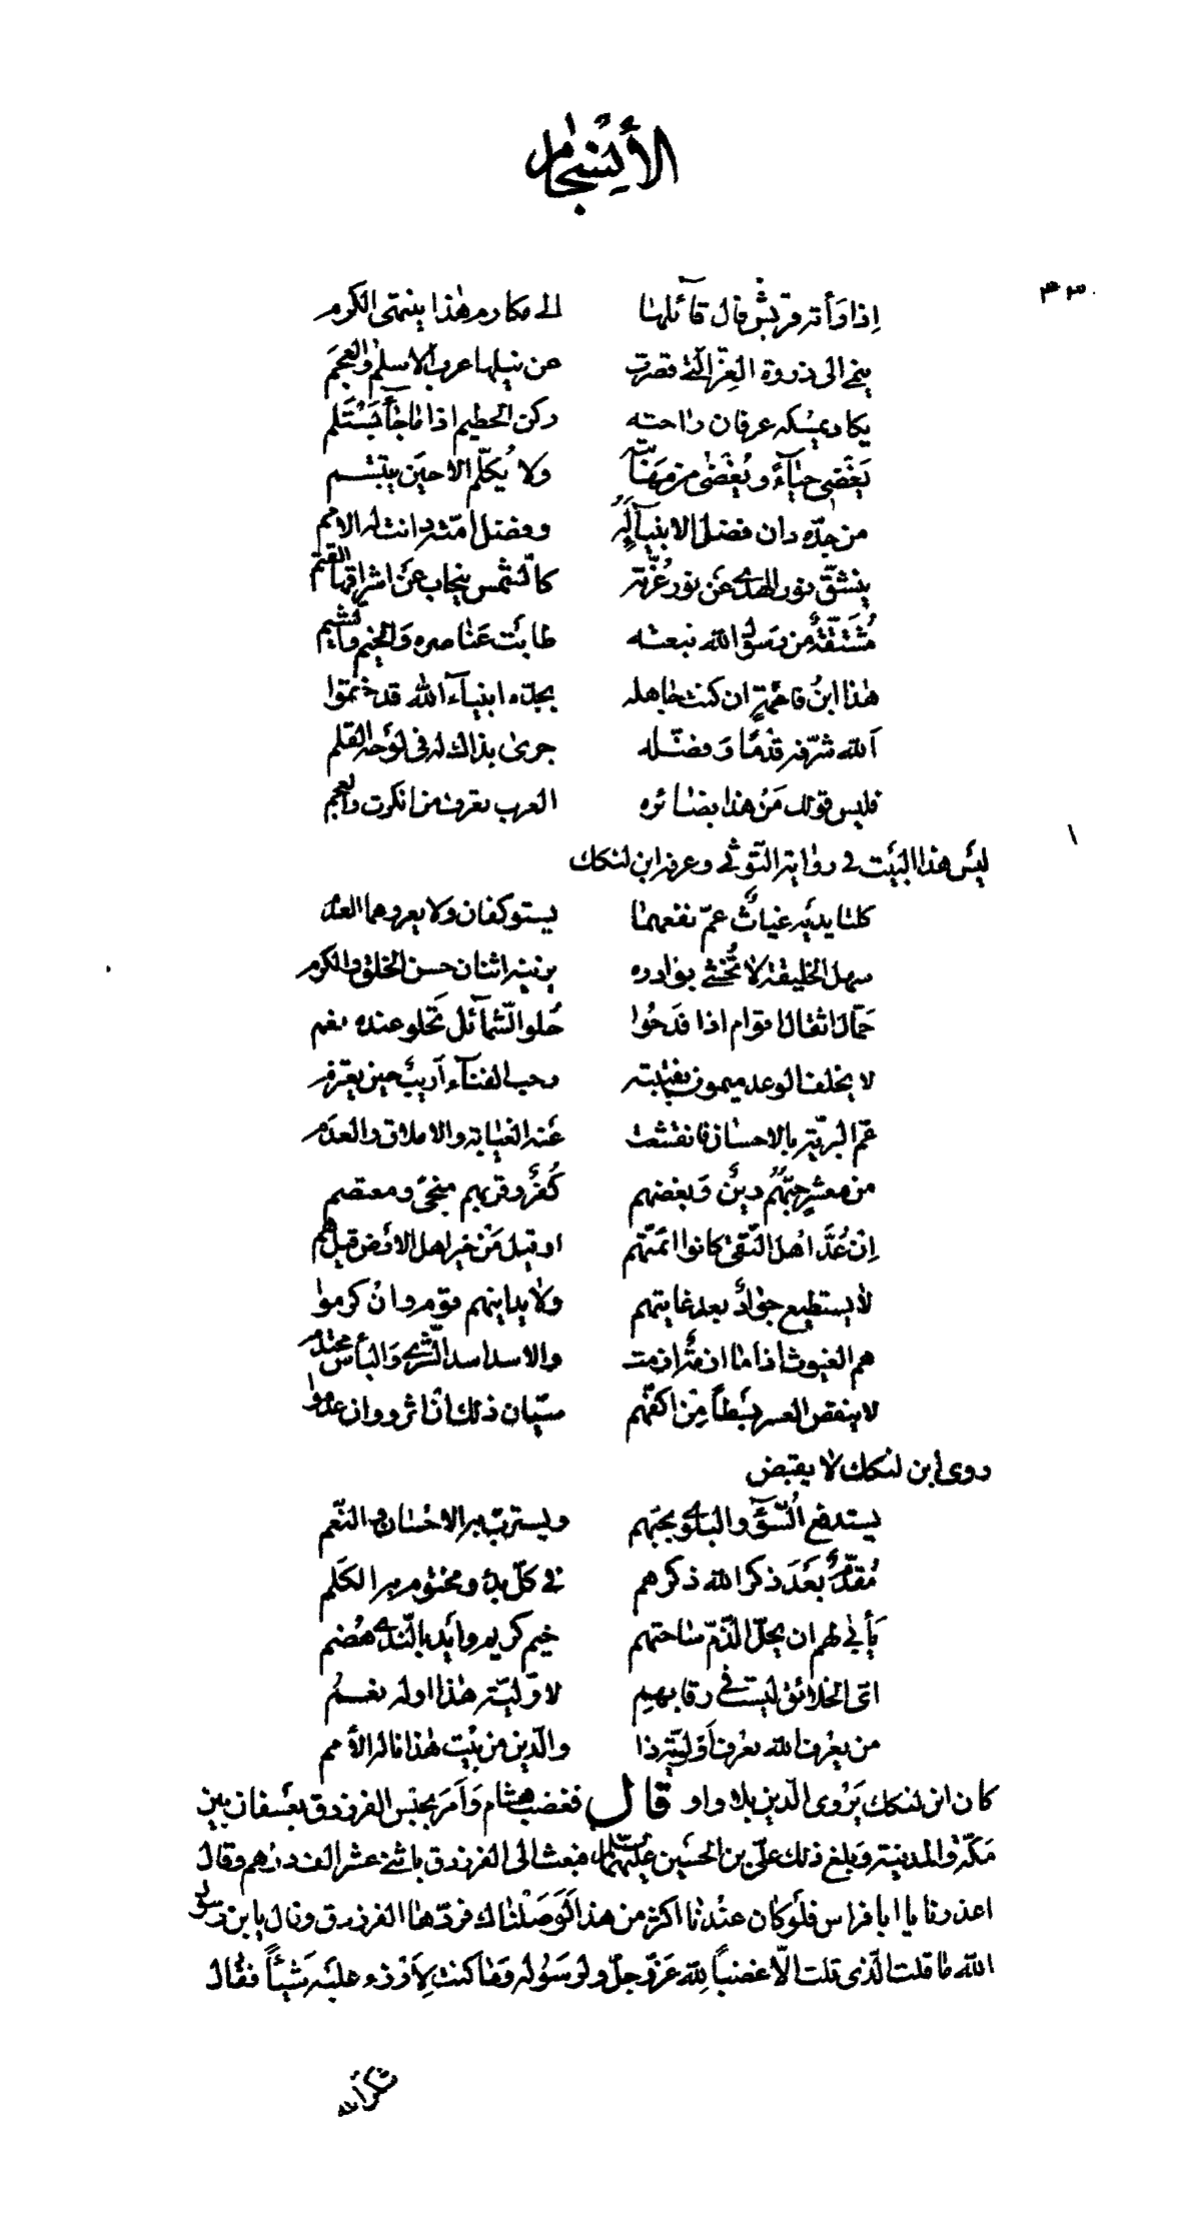 الأنسجام
٤٣٠
إذا رأته قريش قال قائلها إلى مكارم هذا ينتهي الكرم
ينمي الى ذروة العِزّ الّتي قصرت عن نيلها عرب الاسلام والعجَم
يكاد يمسكه عرفان راحته ركن الحطيم اذا ما جآءَ يَسْتَلم
يَغْضِي حيآءً ويُغْضَى من مهَابَته ولا يُكلّم الا حين يبتسم
من جدّه دان فضل الانبيآء لَهُ وفضل امّته دانت له الامم
ينشقّ نور الهدى عَن نور غُرّته كالشّمس ينجاب عَن اشراقها القتم
مُشْتَقّةٌ من رَسول الله نبعته طابَت عَناصره وَالخيم والشيم
هذا ابنُ فاطمةٍ ان كنت جاهله بجدّه انبيآء الله قد ختموا
اَلله شرّفه قِدْمًا وَفضّله جرى بذاك له فى لوَحه القلم
فليس قولك مَنْ هذا بضائره العرب تعرف من انكرت والعجم
١
ليَس هذا البَيت في رواية التّوثي وعرفه ابن لنكك
كلتا يديه غياثٌ عمّ نفعهما يستوكفان ولا يعروهما العدم
سهل الخليقة لا تُخشى بوادره يزينه اثنان حسن الخلق والكرم
حَمّال اثقال اقوام اذا فدَحُوا حُلو الشّمآئل تَحلو عنده نعم
لا يخلف الوعد ميمون نقيبته رحب الفنآء أريب حين يعتزم
عَمّ البريّة بالاحسان فانقشعت عَنه الغيابة والاملاق والعدَم
من معشرٍ حبّهُم دينٌ وَبغضهم كُفرٌ وقربهم منجىً ومعتصم
اِنْ عُدَّ اهل التّقى كانوا ائمّتهم او قيل مَنْ خير اهل الاَرض قيل هُم
لا يستطيع جوادٌ بعد غايتهم ولا يدانيهم قوم وان كرموا
هم الغيوث اذا ما ازمةٌ ازمت والاسد اسد الشّرى وَالبأس محتدم
لا ينقص العسر بَسْطاً مِن اكفّهم سيّان ذلك ان اثروا وان عدموا
روى ابن لنكك لا يقبض
يستدفع السّوَٓء والبلوى بحبّهم ويستربّ به الاحسان والنعّم
مُقدّمٌ بعَدَ ذكر الله ذكرهم في كلّ بدء ومختوم به الكَلم
يَأبى لهم ان يحلّ الذّمّ ساحتهم خيم كريم وأيْد بالنّدى هُضم
اىّ الخلائق ليست في رقابهم لاوّليّة هذا اوله نعم
من يعْرف الله يعْرف اَوّليّة ذا والدّين من بَيت هذا ناله الاُمم
كان ابن لنكك يَرْوى الدّين بلا واو قال فغضب هشام وَاَمرَ بحَبْس الفرزدق بعُسفان بين
مَكّة والمدينة وَبلغ ذلك علىّ بن الحُسَين عليهما السّلام فبعث الى الفرزدق باثنى عشر الف درهم وقال
اعذرنا يا ابا فراس فلَو كان عنْدنا اكثر من هذا لَوَصَلْناك فردّها الفرزدق وقال يا بن رسول
الله ما قلت الّذى قلت الّا غضباً لِلّه عَزّ وجلّ ولرسَوُله وَما كنت لاَرْزء عليَه شَيْئاً فقال
شكرالله